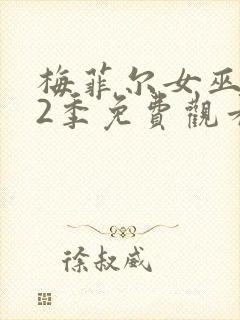 梅菲尔女巫
2季免費觀看
徐叔威